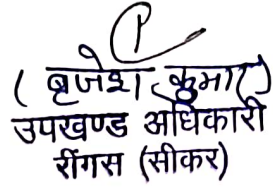 (बृजेश कुमार)
उपखण्ड अधिकारी
रींगस (सीकर)